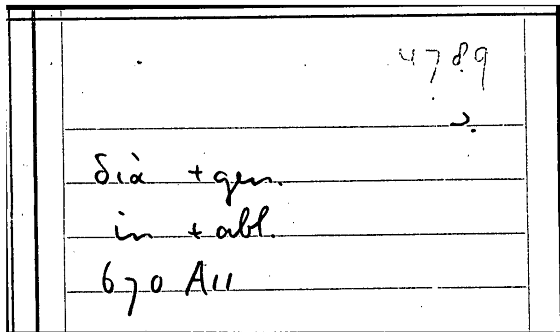 4789
διὰ +gen.
in +abl.
670 A11